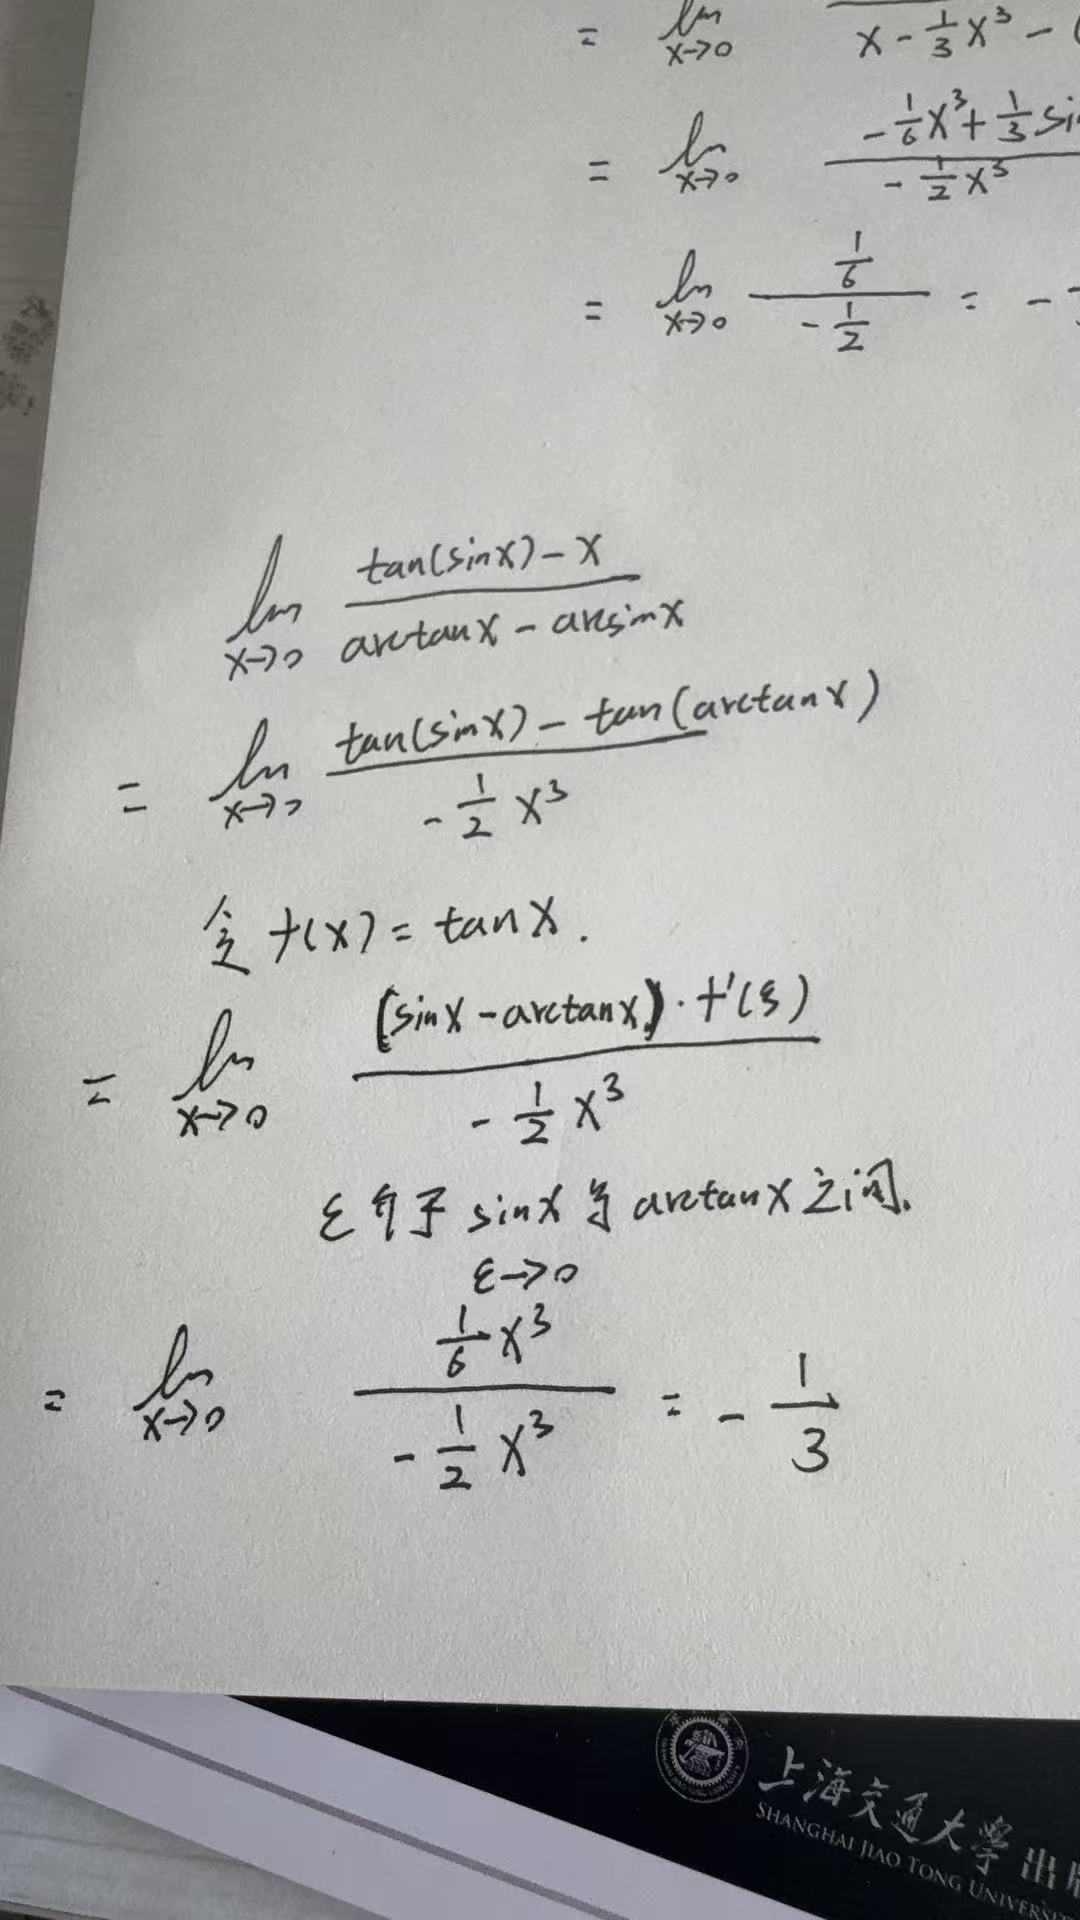 = lim x→0 x - 1/3 x³ - (
= lim x→0 (-1/6 x³ + 1/3 sin) / (-1/2 x³)
= lim x→0 (1/6) / (-1/2) = -
lim x→0 (tan(sinx) - x) / (arctanx - arcsinx)
= lim x→0 (tan(sinx) - tan(arctanx)) / (-1/2 x³)
令 f(x) = tanx.
= lim x→0 ((sinx - arctanx) · f'(ξ)) / (-1/2 x³)
ξ介于 sinx 与 arctanx 之间.
ξ→0
= lim x→0 (1/6 x³) / (-1/2 x³) = - 1/3
上海交通大學出版
SHANGHAI JIAO TONG UNIVERSITY